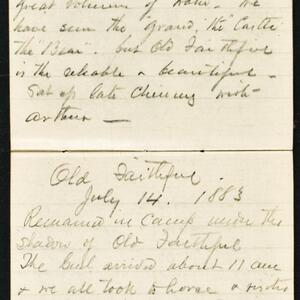 great volumes of water. We
have seen the "Grand," the "Castle"
the "Bear". but Old Faithful
is the reliable & beautiful -
Sat up late chinning with
Arthur —
Old Faithful.
July 14. 1883
Remained in Camp under the
shadow of Old Faithful
The Genl arrived about 11 am
& we all took to horse & visited